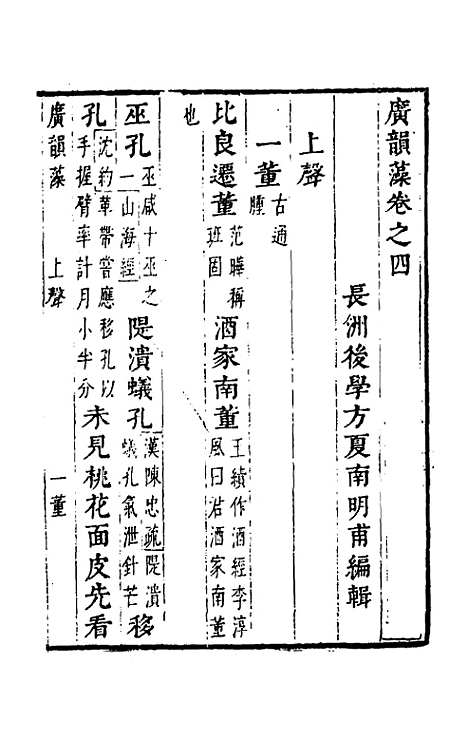 廣韻藻卷之四
長洲後學方夏南明甫編輯
上聲
一董古通腫
比良遷董范曄稱班固酒家南董王績作酒經李淳風曰君酒家南董
也
巫孔巫咸十巫之一山海經隄潰蟻孔漢陳忠疏隄潰蟻孔氣泄針芒移
孔沈約革帶嘗應移孔以手握臂率計月小半分未見桃花面皮先看
廣韻藻 上聲 一董